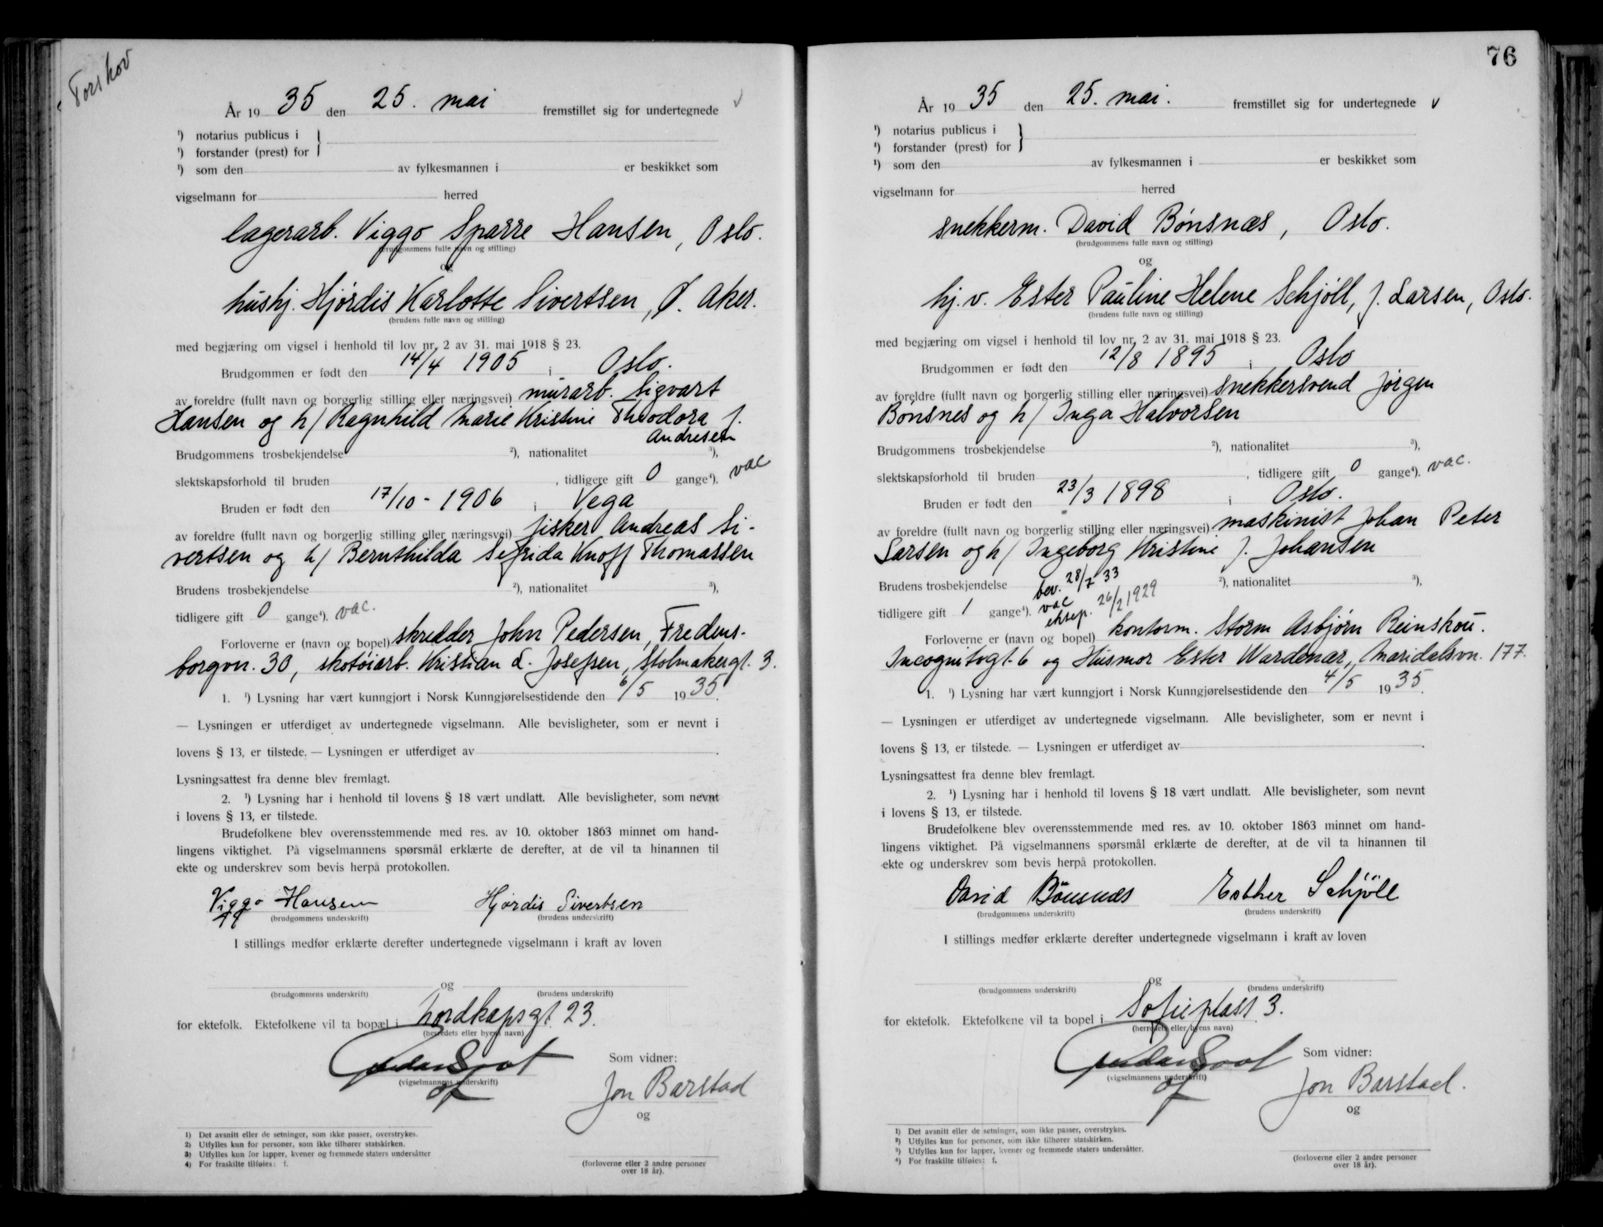 Torskov
År 1935 den 25. mai fremstillet sig for undertegnede
¹) notarius publicus i
¹) forstander (prest) for
¹) som den av fylkesmannen i er beskikket som
vigselmann for herred
lagerarb. Viggo Sparre Hansen, Oslo.
(brudgommens fulle navn og stilling)
og
hushj. Hjørdis Karlotte Sivertsen, Ø. Aker.
(brudens fulle navn og stilling)
med begjæring om vigsel i henhold til lov nr. 2 av 31. mai 1918 § 23.
Brudgommen er født den 14/4 1905 i Oslo.
av foreldre (fullt navn og borgerlig stilling eller næringsvei) murarb. Sigvart
Hansen og h/ Ragnhild Marie Kristine Theodora f.
Andresen
Brudgommens trosbekjendelse ²), nationalitet ³),
slektskapsforhold til bruden , tidligere gift 0 gange⁴). vac
Bruden er født den 17/10 - 1906 i Vega
av foreldre (fullt navn og borgerlig stilling eller næringsvei) fisker Andreas Si-
vertsen og h/ Bernthilda Sefrida Knoff Thomassen
Brudens trosbekjendelse ²), nationalitet ³),
tidligere gift 0 gange⁴). vac.
Forloverne er (navn og bopel) skredder John Pedersen, Fredens-
borgvn. 30, skotøiarb. Kristian L. Josefsen, Stolmakergt. 3.
1. ¹) Lysning har vært kunngjort i Norsk Kunngjørelsestidende den 6/5 1935.
— Lysningen er utferdiget av undertegnede vigselmann. Alle bevisligheter, som er nevnt i
lovens § 13, er tilstede. — Lysningen er utferdiget av .
Lysningsattest fra denne blev fremlagt.
2. ¹) Lysning har i henhold til lovens § 18 vært undlatt. Alle bevisligheter, som nevnt
i lovens § 13, er tilstede.
Brudefolkene blev overensstemmende med res. av 10. oktober 1863 minnet om hand-
lingens viktighet. På vigselmannens spørsmål erklærte de derefter, at de vil ta hinannen til
ekte og underskrev som bevis herpå protokollen.
Viggo Hansen Hjørdis Sivertsen
(brudgommens underskrift) (brudens underskrift)
I stillings medfør erklærte derefter undertegnede vigselmann i kraft av loven
og
(brudgommens underskrift) (brudens underskrift)
for ektefolk. Ektefolkene vil ta bopæl i Nordkapsgt. 23.
(herredets eller byens navn)
Som vidner:
(vigselmannens underskrift)
Jon Barstad
og
1) Det avsnitt eller de setninger, som ikke passer, overstrykes.
2) Utfylles kun for personer, som ikke tilhører statskirken.
3) Utfylles kun for lapper, kvener og fremmede staters undersåtter
4) For fraskilte tilføies: f.
(forloverne eller 2 andre personer
over 18 år).
76
År 1935 den 25. mai. fremstillet sig for undertegnede
¹) notarius publicus i
¹) forstander (prest) for
¹) som den av fylkesmannen i er beskikket som
vigselmann for herred
snekkerm. David Bønsnæs, Oslo.
(brudgommens fulle navn og stilling)
og
hj. v. Ester Pauline Helene Schjöll, f. Larsen, Oslo.
(brudens fulle navn og stilling)
med begjæring om vigsel i henhold til lov nr. 2 av 31. mai 1918 § 23.
Brudgommen er født den 12/8 1895 i Oslo
av foreldre (fullt navn og borgerlig stilling eller næringsvei) snekkersvend Jørgen
Bønsnes og h/ Inga Halvorsen
Brudgommens trosbekjendelse ²), nationalitet ³),
slektskapsforhold til bruden , tidligere gift 0 gange⁴). vac.
Bruden er født den 23/3 1898 i Oslo.
av foreldre (fullt navn og borgerlig stilling eller næringsvei) maskinist Johan Peter
Larsen og h/ Ingeborg Kristine f. Johansen
Brudens trosbekjendelse bev. 28/7 33 ²), nationalitet ³),
tidligere gift 1 gange⁴). vac
eksp. 26/2 1929
Forloverne er (navn og bopel) kontorm. Storm Asbjørn Reinskou.
Incognitogt. 6 og Husmor Ester Wardenær, Maridalsvn. 177.
1. ¹) Lysning har vært kunngjort i Norsk Kunngjørelsestidende den 4/5 1935.
— Lysningen er utferdiget av undertegnede vigselmann. Alle bevisligheter, som er nevnt i
lovens § 13, er tilstede. — Lysningen er utferdiget av .
Lysningsattest fra denne blev fremlagt.
2. ¹) Lysning har i henhold til lovens § 18 vært undlatt. Alle bevisligheter, som nevnt
i lovens § 13, er tilstede.
Brudefolkene blev overensstemmende med res. av 10. oktober 1863 minnet om hand-
lingens viktighet. På vigselmannens spørsmål erklærte de derefter, at de vil ta hinannen til
ekte og underskrev som bevis herpå protokollen.
David Bönsnæs Esther Schjöll
(brudgommens underskrift) (brudens underskrift)
I stillings medfør erklærte derefter undertegnede vigselmann i kraft av loven
og
(brudgommens underskrift) (brudens underskrift)
for ektefolk. Ektefolkene vil ta bopel i Sofieplass 3.
(herredets eller byens navn)
Som vidner:
(vigselmannens underskrift)
Jon Barstad.
og
1) Det avsnitt eller de setninger, som ikke passer, overstrykes.
2) Utfylles kun for personer, som ikke tilhører statskirken.
3) Utfylles kun for lapper, kvener og fremmede staters undersåtter.
4) For fraskilte tilføies: f.
(forloverne eller 2 andre personer
over 18 år).